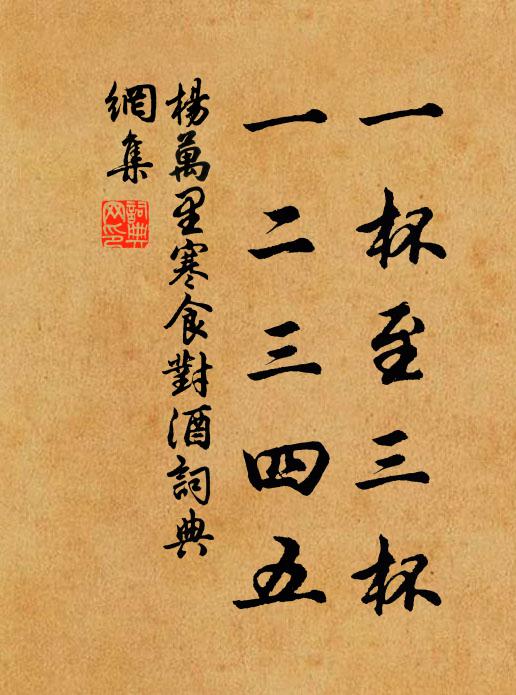 一杯至三杯
一二三四五
楊萬里寒食對酒詞典
網集
詞典
网印